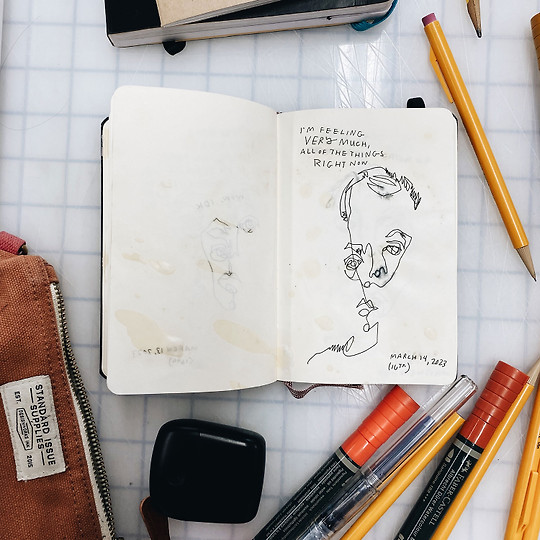 I'M FEELING
VERY MUCH,
ALL OF THE THINGS
RIGHT NOW
MARCH 14, 2023
(16TH)
STANDARD ISSUE
SUPPLIES
EST.
2015
FABER-CASTELL